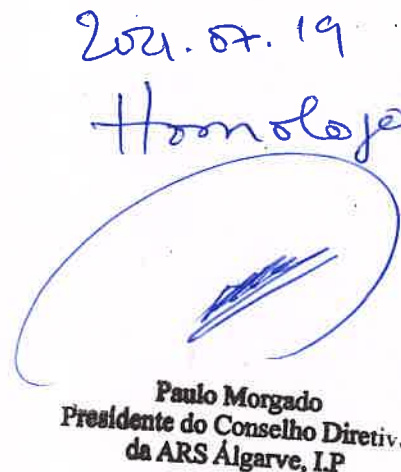 2021.07.19
Homologo
Paulo Morgado
Presidente do Conselho Diretiv.
da ARS Algarve, I.P